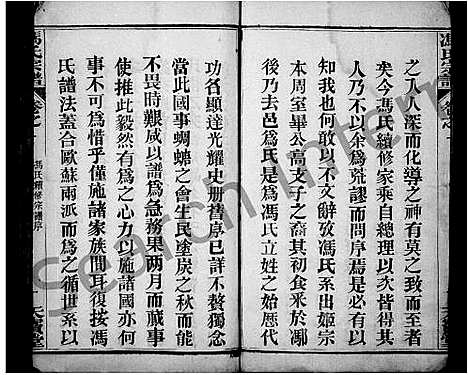 馮氏宗譜
之入人深而化導之神有莫之致而至者
矣今馮氏續修家乘自總理以次皆得其
人乃不以余為荒謬而問序焉是必有以
知我也何敢以不文辭攷馮氏系出姬宗
本周室畢公高支子之裔其初食釆於馮
後去邑為氏是為馮氏立姓之始厥後世
功各顯達光耀史册舊序已詳不贅獨念
當此國事蜩螗之會生民塗炭之秋而能
不畏時艱咸以譜為急務果兩月而蕆事
使推此毅然有為之心力以施諸國亦何
事不可為惜乎僅施諸家族間耳復按馮
氏譜法蓋合歐蘇兩派而為之循世系以
馮氏宗譜
卷之一
馮氏續修宗譜序
Search Intern